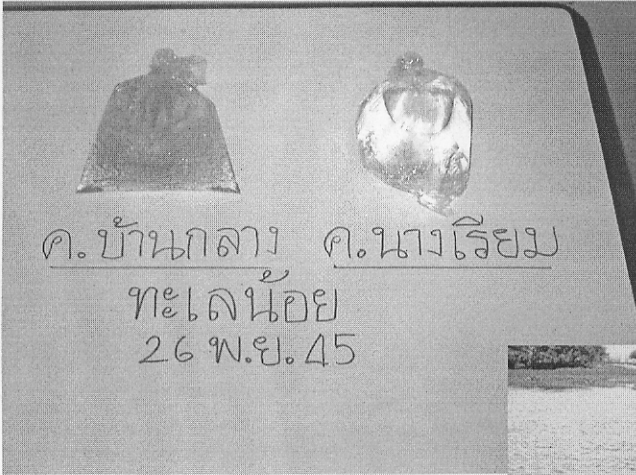 ค.บ้านกลาง ค.นางเรียม
ทะเลน้อย
26 พ.ย. 45